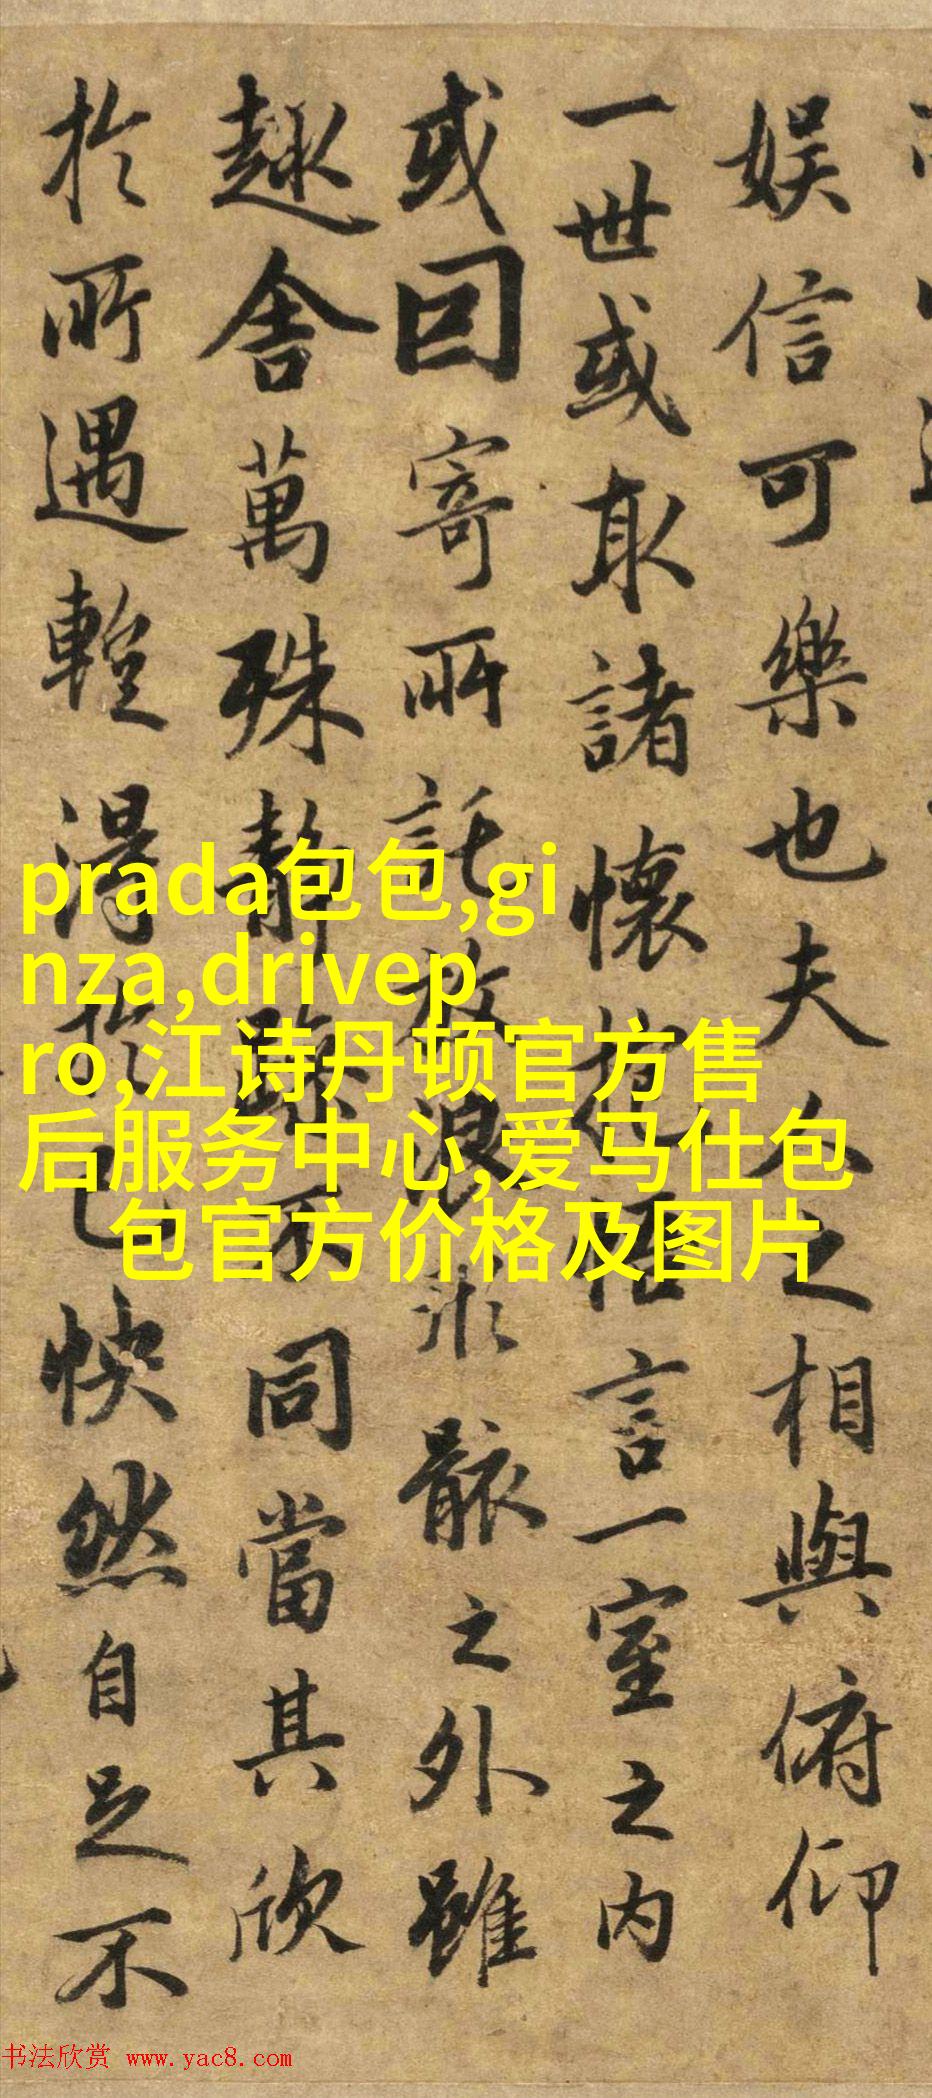 娛信可樂也夫人之相與俯仰
一世或取諸懷抱悟言一室之内
或囙寄所託放浪形骸之外雖
趣舍萬殊靜躁不同當其欣
於所遇蹔得於己快然自足不
prada包包,gi
nza,drivep
ro,江诗丹顿官方售
后服务中心,爱马仕包
包官方价格及图片
书法欣赏 www.yac8.com